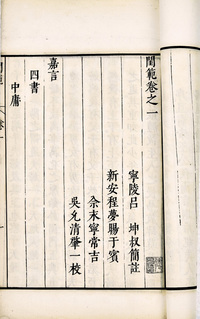 閨範卷之一
寧陵呂 坤叔簡註
新安程夢暘于賓
佘永寧常吉
吳允清肇一校
嘉言
四書
中庸